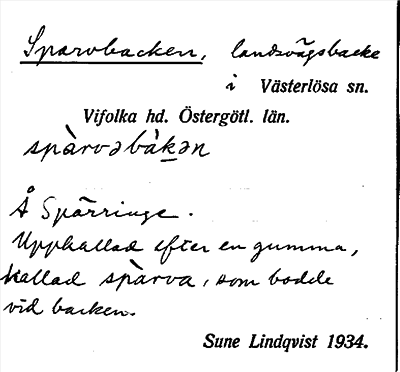 Sparvbacken, landsvägsbacke
i Västerlösa sn.
Vifolka hd. Östergötl. län.
spàrvəbàkən
Å Spärringe.
Uppkallad efter en gumma,
kallad spàrva, som bodde
vid backen.
Sune Lindqvist 1934.